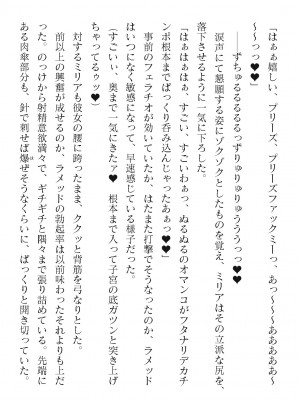 「はぁぁ嬉しい、プリーズ、プリーズファックミーっ、あっ～～～ああああああ
～～っっ♥♥」
――ずちゅるるるるっずりゅりゅりゅうううつっ♥♥
涙声にて懇願する姿にゾクゾクとしたものを覚え、ミリアはその立派な尻を、
落下させるように一気に下ろした。
「はぁはぁはぁ、すごい、すごいわぁっ、ぬるぬるのオマンコがフタナリデカチ
ンポ根本までばっくり呑み込んじゃったあぁっ♥♥」
事前のフェラチオが効いていたか、はたまた打撃でそうなったのか、ラメッド
はいつになく敏感になって、早速感じている様子だった。
（すごいぃ、奥まで一気にきたァ♥　根本まで入って子宮の底ガツンと突き上げ
ちゃってるゥッ♥）
対するミリアも彼女の腰に跨ったまま、ククッと背筋を弓なりとした。
前以上の興奮が成せるのか、ラメッドの勃起率は以前味わったそれよりも上だ
った。のっけから射精意欲満々で、ギチギチと隅々まで張り詰めている。先端に
ある肉傘部分も、針で刺せば爆ぜそうなくらいに、ばっくりと開き切っていた。